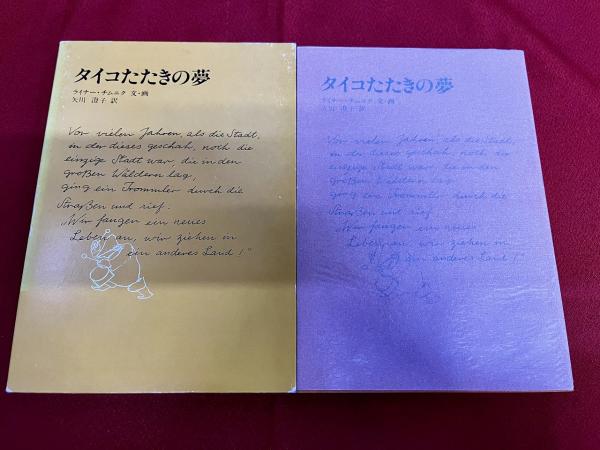 タイコたたきの夢
ライナー・チムニク 文・画
矢川 澄子 訳
Vor vielen Jahren, als die Stadt,
in der dieses geschah, noch die
einzige Stadt war, die in den
großen Wäldern lag,
ging ein Trommler durch die
Straßen und rief:
„Wir fangen ein neues
Leben an, wir ziehen in
ein anderes Land!"
タイコたたきの夢
ライナー・チムニク 文・画
矢川 澄子 訳
Vor vielen Jahren, als die Stadt,
in der dieses geschah, noch die
einzige Stadt war, die in den
großen Wäldern lag,
ging ein Trommler durch die
Straßen und rief:
„Wir fangen ein neues
Leben an, wir ziehen in
ein anderes Land!"